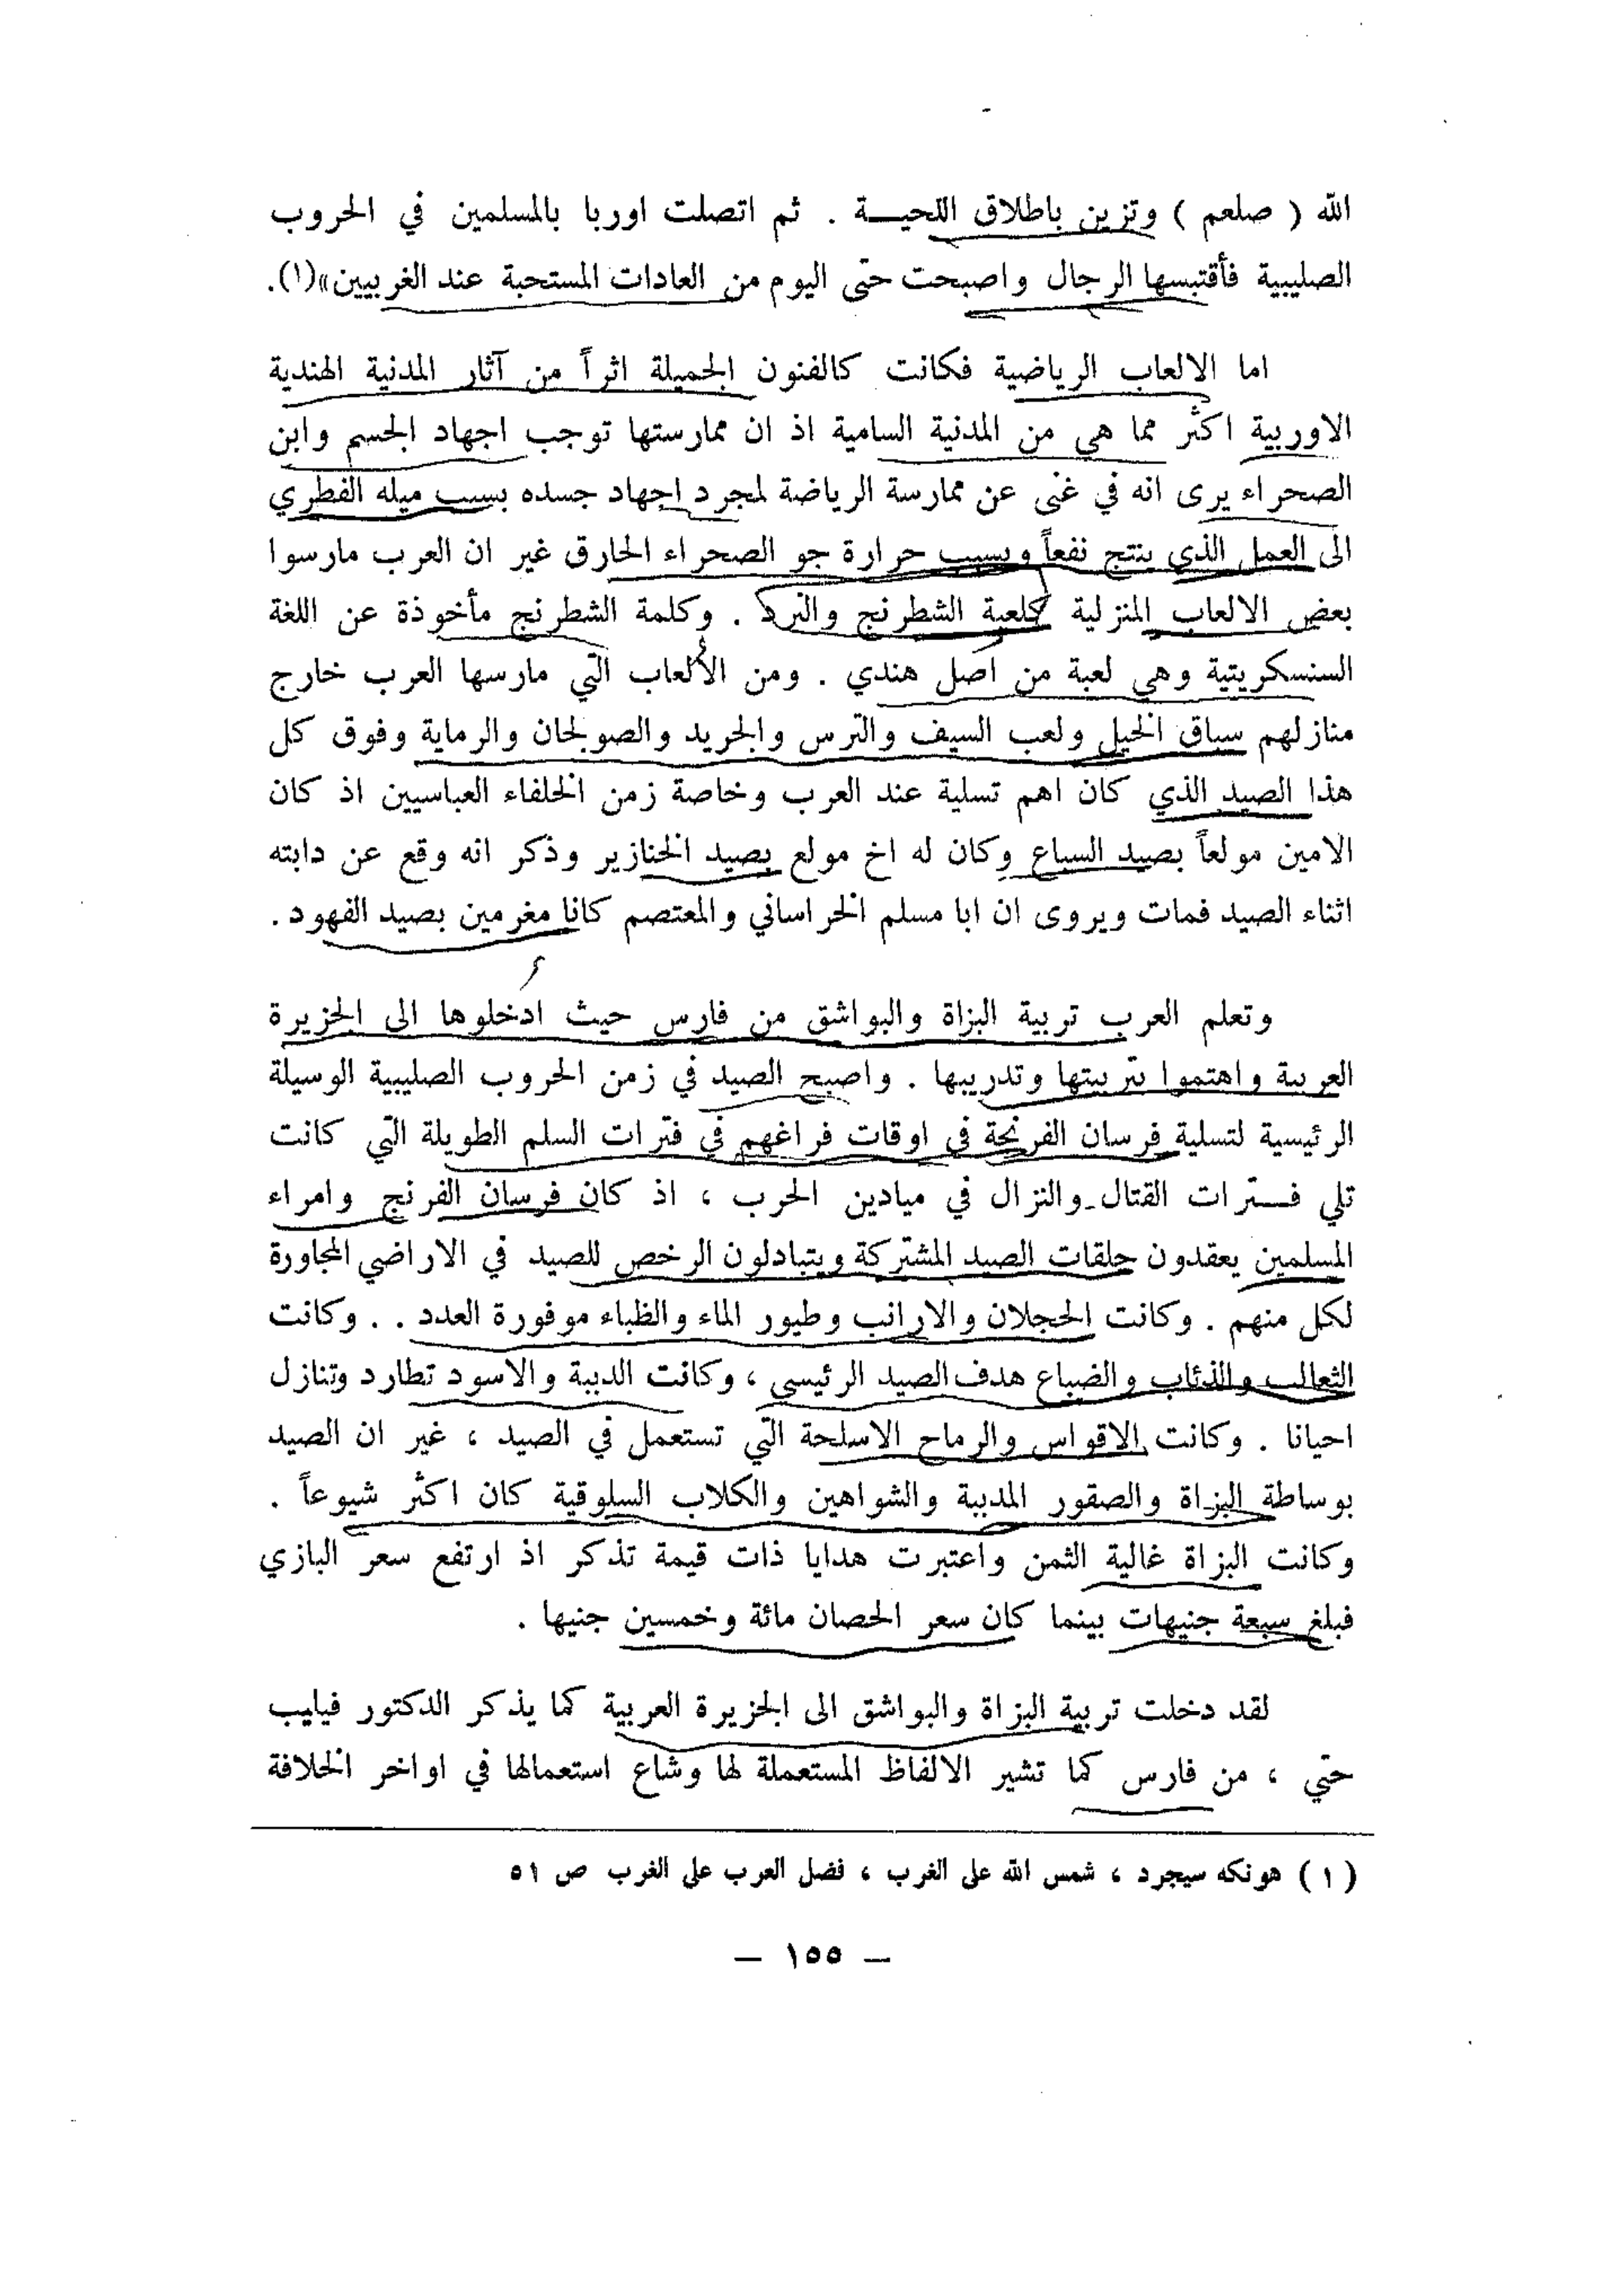 الله ( صلعم ) وتزين باطلاق اللحيـــة . ثم اتصلت اوربا بالمسلمين في الحروب
الصليبية فأقتبسها الرجال واصبحت حتى اليوم من العادات المستحبة عند الغربيين»(١).
اما الالعاب الرياضية فكانت كالفنون الجميلة اثراً من آثار المدنية الهندية
الاوربية اكثر مما هي من المدنية السامية اذ ان ممارستها توجب اجهاد الجسم وابن
الصحراء يرى انه في غنى عن ممارسة الرياضة لمجرد اجهاد جسده بسبب ميله الفطري
الى العمل الذي ينتج نفعاً وبسبب حرارة جو الصحراء الحارق غير ان العرب مارسوا
بعض الالعاب المنزلية كلعبة الشطرنج والنرد . وكلمة الشطرنج مأخوذة عن اللغة
السنسكريتية وهي لعبة من اصل هندي . ومن الألعاب التي مارسها العرب خارج
منازلهم سباق الخيل ولعب السيف والترس والجريد والصولجان والرماية وفوق كل
هذا الصيد الذي كان اهم تسلية عند العرب وخاصة زمن الخلفاء العباسيين اذ كان
الامين مولعاً بصيد السباع وكان له اخ مولع بصيد الخنازير وذكر انه وقع عن دابته
اثناء الصيد فمات ويروى ان ابا مسلم الخراساني والمعتصم كانا مغرمين بصيد الفهود .
وتعلم العرب تربية البزاة والبواشق من فارس حيث ادخلوها الى الجزيرة
العربية واهتموا بتربيتها وتدريبها . واصبح الصيد في زمن الحروب الصليبية الوسيلة
الرئيسية لتسلية فرسان الفرنجة في اوقات فراغهم في فترات السلم الطويلة التي كانت
تلي فــترات القتال والنزال في ميادين الحرب ، اذ كان فرسان الفرنج وامراء
المسلمين يعقدون حلقات الصيد المشتركة ويتبادلون الرخص للصيد في الاراضي المجاورة
لكل منهم . وكانت الحجلان والارانب وطيور الماء والظباء موفورة العدد . . وكانت
الثعالب والذئاب والضباع هدف الصيد الرئيسي ، وكانت الدببة والاسود تطارد وتنازل
احيانا . وكانت الاقواس والرماح الاسلحة التي تستعمل في الصيد ، غير ان الصيد
بوساطة البزاة والصقور المدببة والشواهين والكلاب السلوقية كان اكثر شيوعاً .
وكانت البزاة غالية الثمن واعتبرت هدايا ذات قيمة تذكر اذ ارتفع سعر البازي
فبلغ سبعة جنيهات بينما كان سعر الحصان مائة وخمسين جنيها .
لقد دخلت تربية البزاة والبواشق الى الجزيرة العربية كما يذكر الدكتور فيليب
حتي ، من فارس كما تشير الالفاظ المستعملة لها وشاع استعمالها في اواخر الخلافة
(١) هونكه سيجرد ، شمس الله على الغرب ، فضل العرب على الغرب ص ٥١
— ١٥٥ —